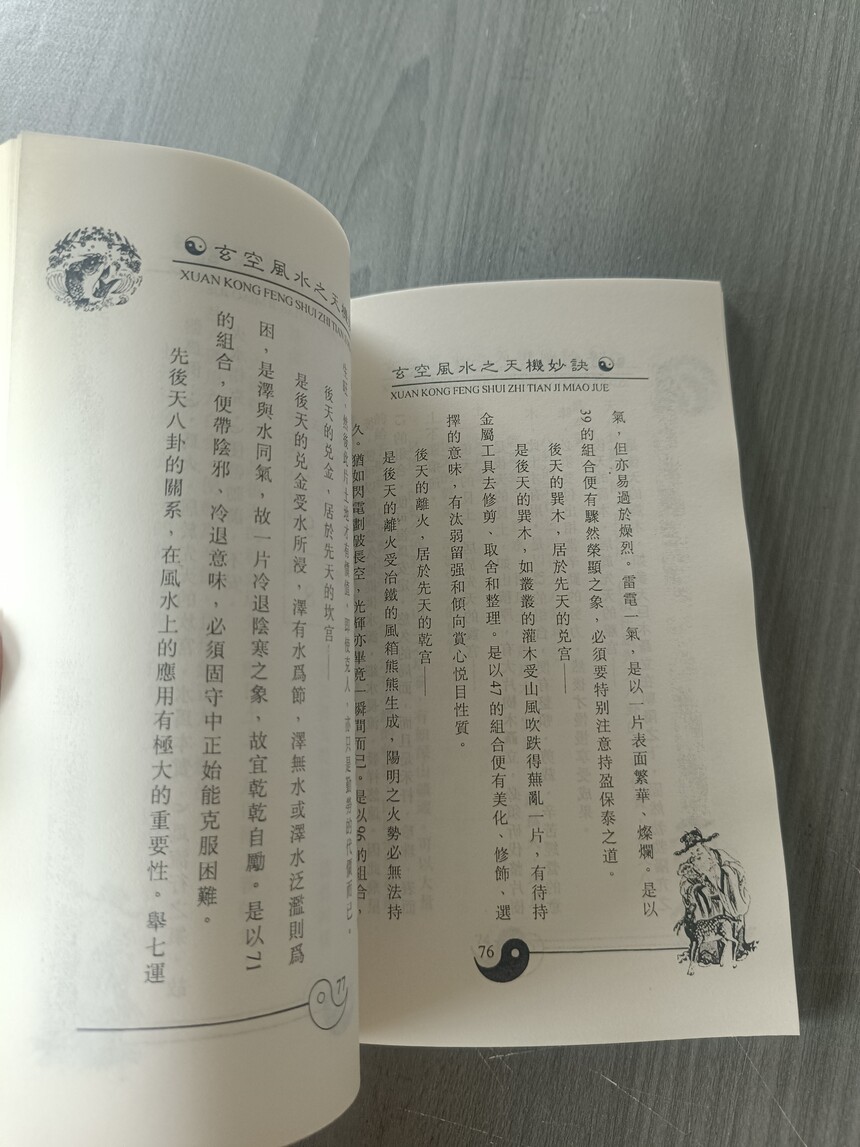 玄空風水之天機妙訣
XUAN KONG FENG SHUI ZHI TIAN JI MIAO JUE
氣，但亦易過於燥烈。雷電一氣，是以一片表面繁華、燦爛。是以
39的組合便有驟然榮顯之象，必須要特别注意持盈保泰之道。
後天的巽木，居於先天的兑宫——
是後天的巽木，如叢叢的灌木受山風吹跌得蕪亂一片，有待持
金屬工具去修剪、取舍和整理。是以47的組合便有美化、修飾、選
擇的意味，有汰弱留强和傾向賞心悦目性質。
後天的離火，居於先天的乾宫——
是後天的離火受冶鐵的風箱熊熊生成，陽明之火勢必無法持
久。猶如閃電劃破長空，光輝亦畢竟一瞬間而已。是以96的組合，
76
玄空風水之天機
XUAN KONG FENG SHUI ZHI TIAN
，然後此片土地才有價值，即使克人，亦只是勤勞的代價而已。
後天的兑金，居於先天的坎宫
是後天的兑金受水所浸，澤有水爲節，澤無水或澤水泛濫則爲
困，是澤與水同氣，故一片冷退陰寒之象，故宜乾乾自勵。是以71
的組合，便帶陰邪、冷退意味，必須固守中正始能克服困難。
先後天八卦的關系，在風水上的應用有極大的重要性。舉七運
77